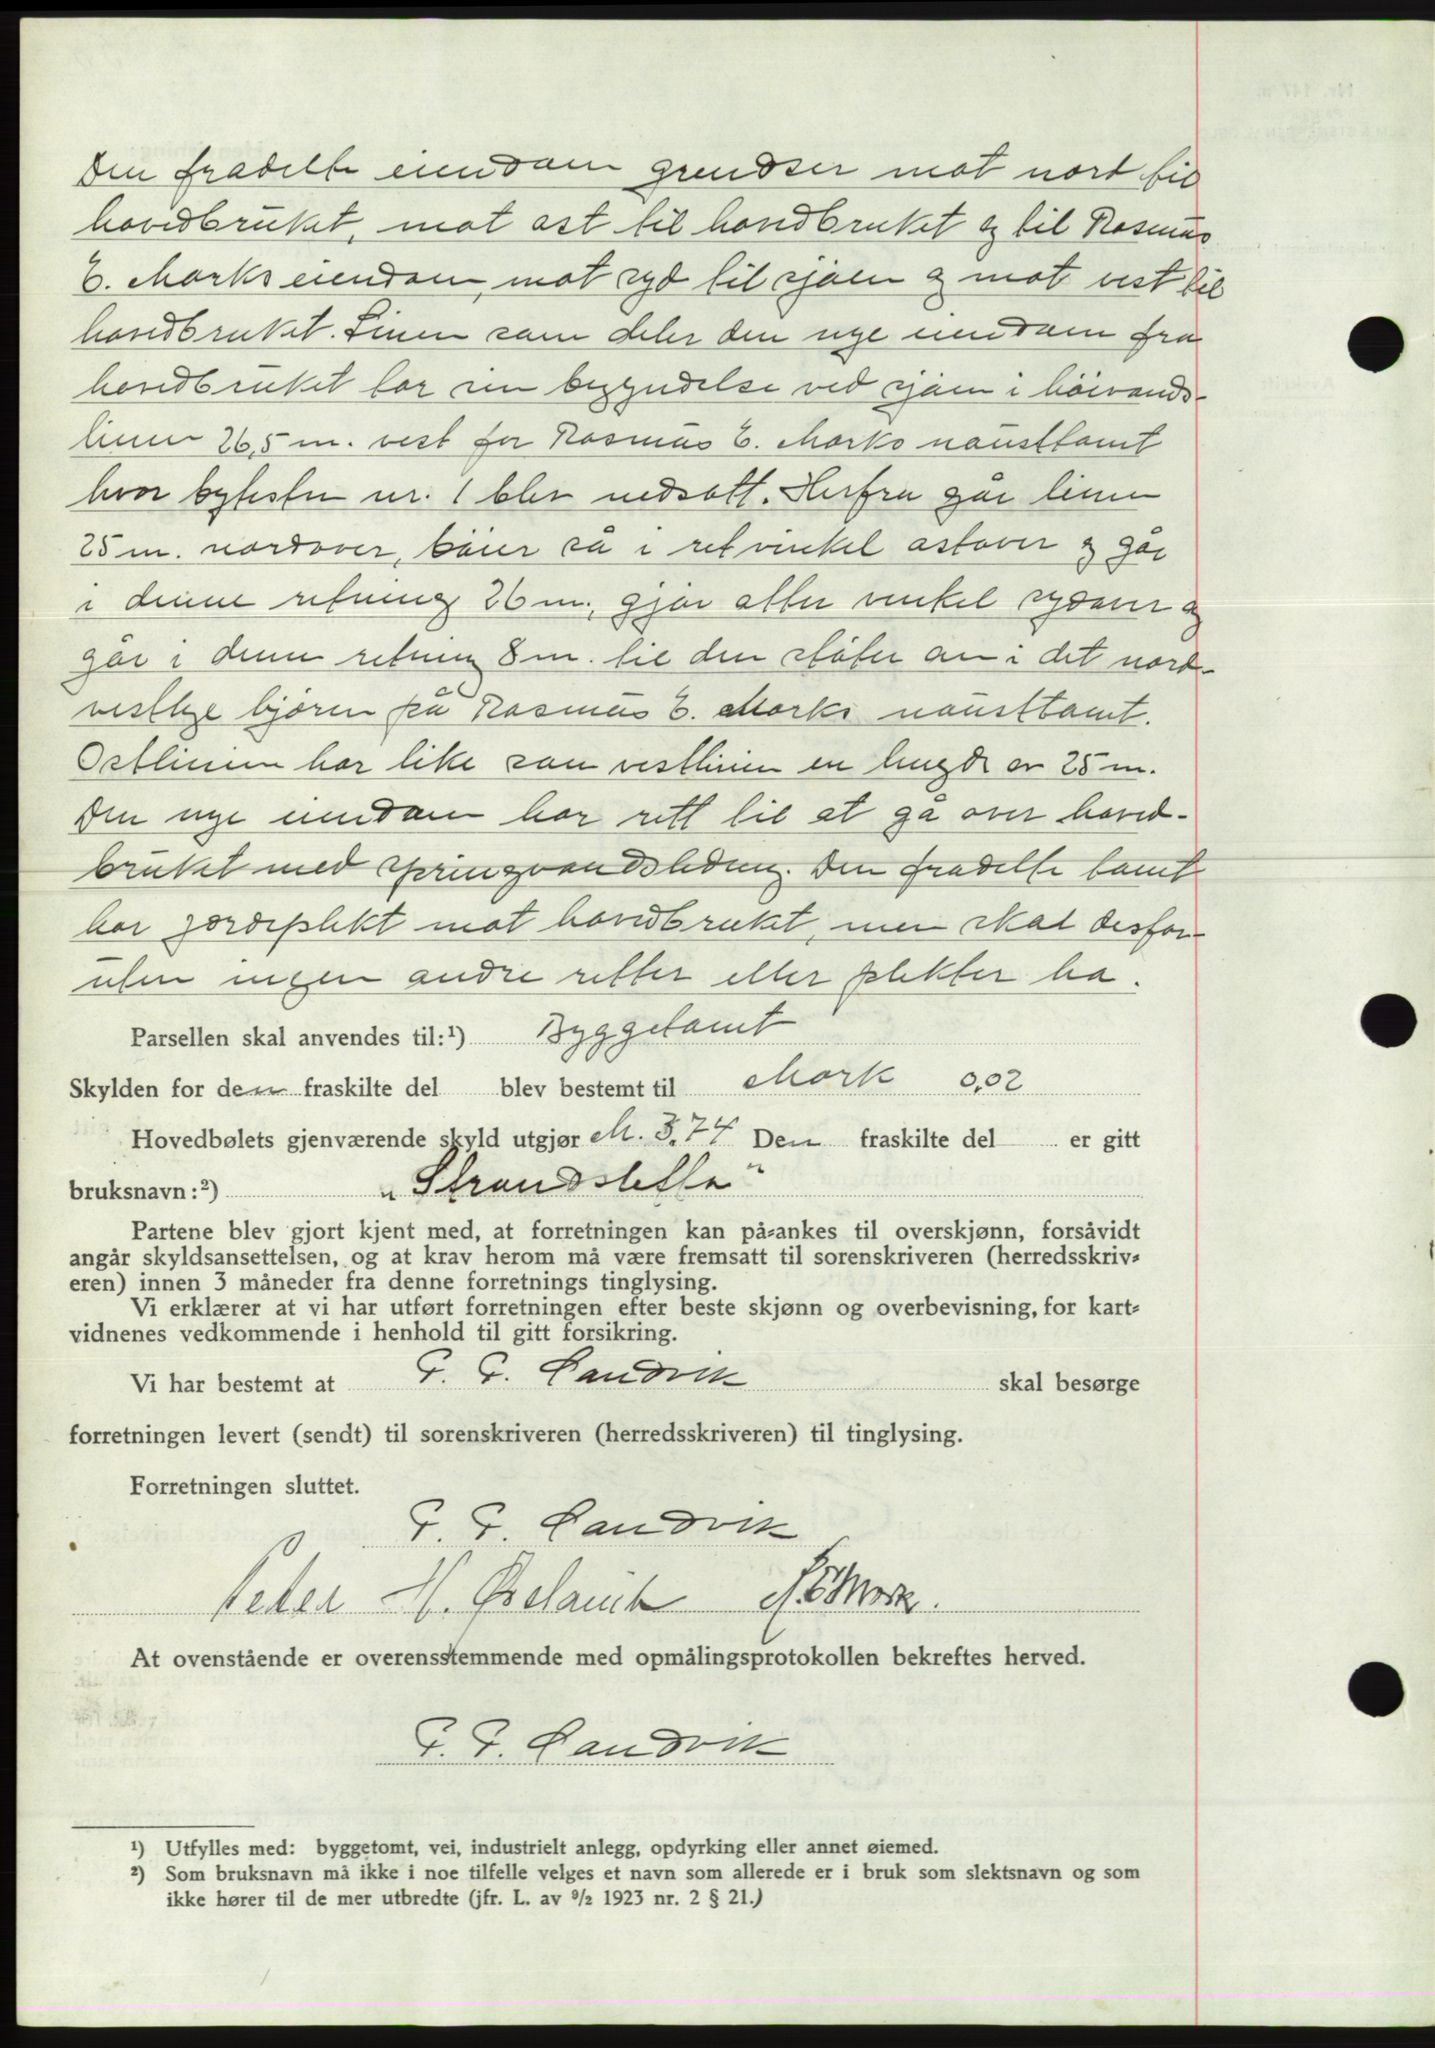 Den fradelte eiendom grendser mot nord til
hovedbruket, mot ost til hovedbruket og til Rasmus
E. Morks eiendom, mot syd til sjøen og mot vest til
hovedbruket. Linen som deler den nye eiendom fra
hovedbruket tar sin begyndelse ved sjøen i høivands-
linen 26,5 m. vest for Rasmus E. Morks nausttomt
hvor bytesten nr. 1 blev nedsatt. Herfra går linen
25 m. nordover, bøier så i ret vinkel ostover og går
i denne retning 26 m., gjør atter vinkel sydover og
går i denne retning 8 m. til den støter an i det nord-
vestlige hjøren på Rasmus E. Morks nausttomt.
Ostlinien har like som vestlinien en lengde av 25 m.
Den nye eiendom har rett til at gå over hoved-
bruket med springvandsledning. Den fradelte tomt
har gjerdeplikt mot hovedbruket, men skal desfor-
uten ingen andre retter eller plikter ha.
Parsellen skal anvendes til:¹) Byggetomt
Skylden for den fraskilte del blev bestemt til Mark 0,02
Hovedbølets gjenværende skyld utgjør M. 3,74 Den fraskilte del er gitt
bruksnavn:²) „Strandsletta"
Partene blev gjort kjent med, at forretningen kan på-ankes til overskjønn, forsåvidt
angår skyldsansettelsen, og at krav herom må være fremsatt til sorenskriveren (herredsskriv-
eren) innen 3 måneder fra denne forretnings tinglysing.
Vi erklærer at vi har utført forretningen efter beste skjønn og overbevisning, for kart-
vidnenes vedkommende i henhold til gitt forsikring.
Vi har bestemt at P. P. Sandvik skal besørge
forretningen levert (sendt) til sorenskriveren (herredsskriveren) til tinglysing.
Forretningen sluttet.
P. P. Sandvik
Peter H. Ørslavik R. E. Mork.
At ovenstående er overensstemmende med opmålingsprotokollen bekreftes herved.
P. P. Sandvik
¹) Utfylles med: byggetomt, vei, industrielt anlegg, opdyrking eller annet øiemed.
²) Som bruksnavn må ikke i noe tilfelle velges et navn som allerede er i bruk som slektsnavn og som
ikke hører til de mer utbredte (jfr. L. av ⁹/₂ 1923 nr. 2 § 21.)